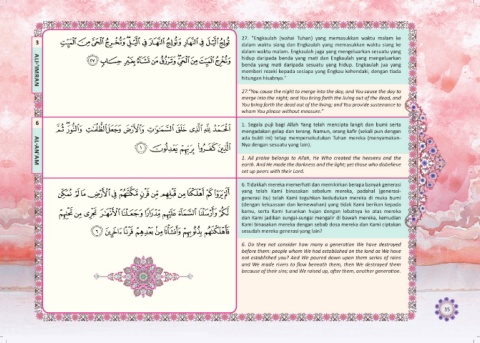 3
ALI-'IMRAN
تُولِجُ ٱلَّيْلَ فِى ٱلنَّهَارِ وَتُولِجُ ٱلنَّهَارَ فِى ٱلَّيْلِ وَتُخْرِجُ ٱلْحَىَّ مِنَ ٱلْمَيِّتِ
وَتُخْرِجُ ٱلْمَيِّتَ مِنَ ٱلْحَىِّ وَتَرْزُقُ مَن تَشَآءُ بِغَيْرِ حِسَابٍ ٢٧
27. "Engkaulah (wahai Tuhan) yang memasukkan waktu malam ke
dalam waktu siang dan Engkaulah yang memasukkan waktu siang ke
dalam waktu malam. Engkaulah juga yang mengeluarkan sesuatu yang
hidup daripada benda yang mati dan Engkaulah yang mengeluarkan
benda yang mati daripada sesuatu yang hidup. Engkau jua yang
memberi rezeki kepada sesiapa yang Engkau kehendaki, dengan tiada
hitungan hisabnya."
27."You cause the night to merge into the day, and You cause the day to
merge into the night; and You bring forth the living out of the dead, and
You bring forth the dead out of the living; and You provide sustenance to
whom You please without measure."
6
AL-AN'AM
ٱلْحَمْدُ لِلَّهِ ٱلَّذِى خَلَقَ ٱلسَّمَـٰوَٰتِ وَٱلْأَرْضَ وَجَعَلَ ٱلظُّلُمَـٰتِ وَٱلنُّورَ ثُمَّ
ٱلَّذِينَ كَفَرُوا۟ بِرَبِّهِمْ يَعْدِلُونَ ١
1. Segala puji bagi Allah Yang telah mencipta langit dan bumi serta
mengadakan gelap dan terang. Namun, orang kafir (sekali pun dengan
ada bukti ini) tetap mempersekutukan Tuhan mereka (menyamakan-
Nya dengan sesuatu yang lain).
1. All praise belongs to Allah; He Who created the heavens and the
earth. And He made the darkness and the light; yet those who disbelieve
set up peers with their Lord.
أَلَمْ يَرَوْا۟ كَمْ أَهْلَكْنَا مِن قَبْلِهِم مِّن قَرْنٍ مَّكَّنَّـٰهُمْ فِى ٱلْأَرْضِ مَا لَمْ نُمَكِّن
لَّكُمْ وَأَرْسَلْنَا ٱلسَّمَآءَ عَلَيْهِم مِّدْرَارًا وَجَعَلْنَا ٱلْأَنْهَـٰرَ تَجْرِى مِن تَحْتِهِمْ
فَأَهْلَكْنَـٰهُم بِذُنُوبِهِمْ وَأَنشَأْنَا مِنۢ بَعْدِهِمْ قَرْنًا ءَاخَرِينَ ٦
6. Tidakkah mereka memerhati dan memikirkan berapa banyak generasi
yang telah Kami binasakan sebelum mereka, padahal (generasi-
generasi itu) telah Kami teguhkan kedudukan mereka di muka bumi
(dengan kekuasaan dan kemewahan) yang tidak Kami berikan kepada
kamu, serta Kami turunkan hujan dengan lebatnya ke atas mereka
dan Kami jadikan sungai-sungai mengalir di bawah mereka, kemudian
Kami binasakan mereka dengan sebab dosa mereka dan Kami ciptakan
sesudah mereka generasi yang lain?
6. Do they not consider how many a generation We have destroyed
before them: people whom We had established on the land as We have
not established you? And We poured down upon them series of rains
and We made rivers to flow beneath them, then We destroyed them
because of their sins; and We raised up, after them, another generation.